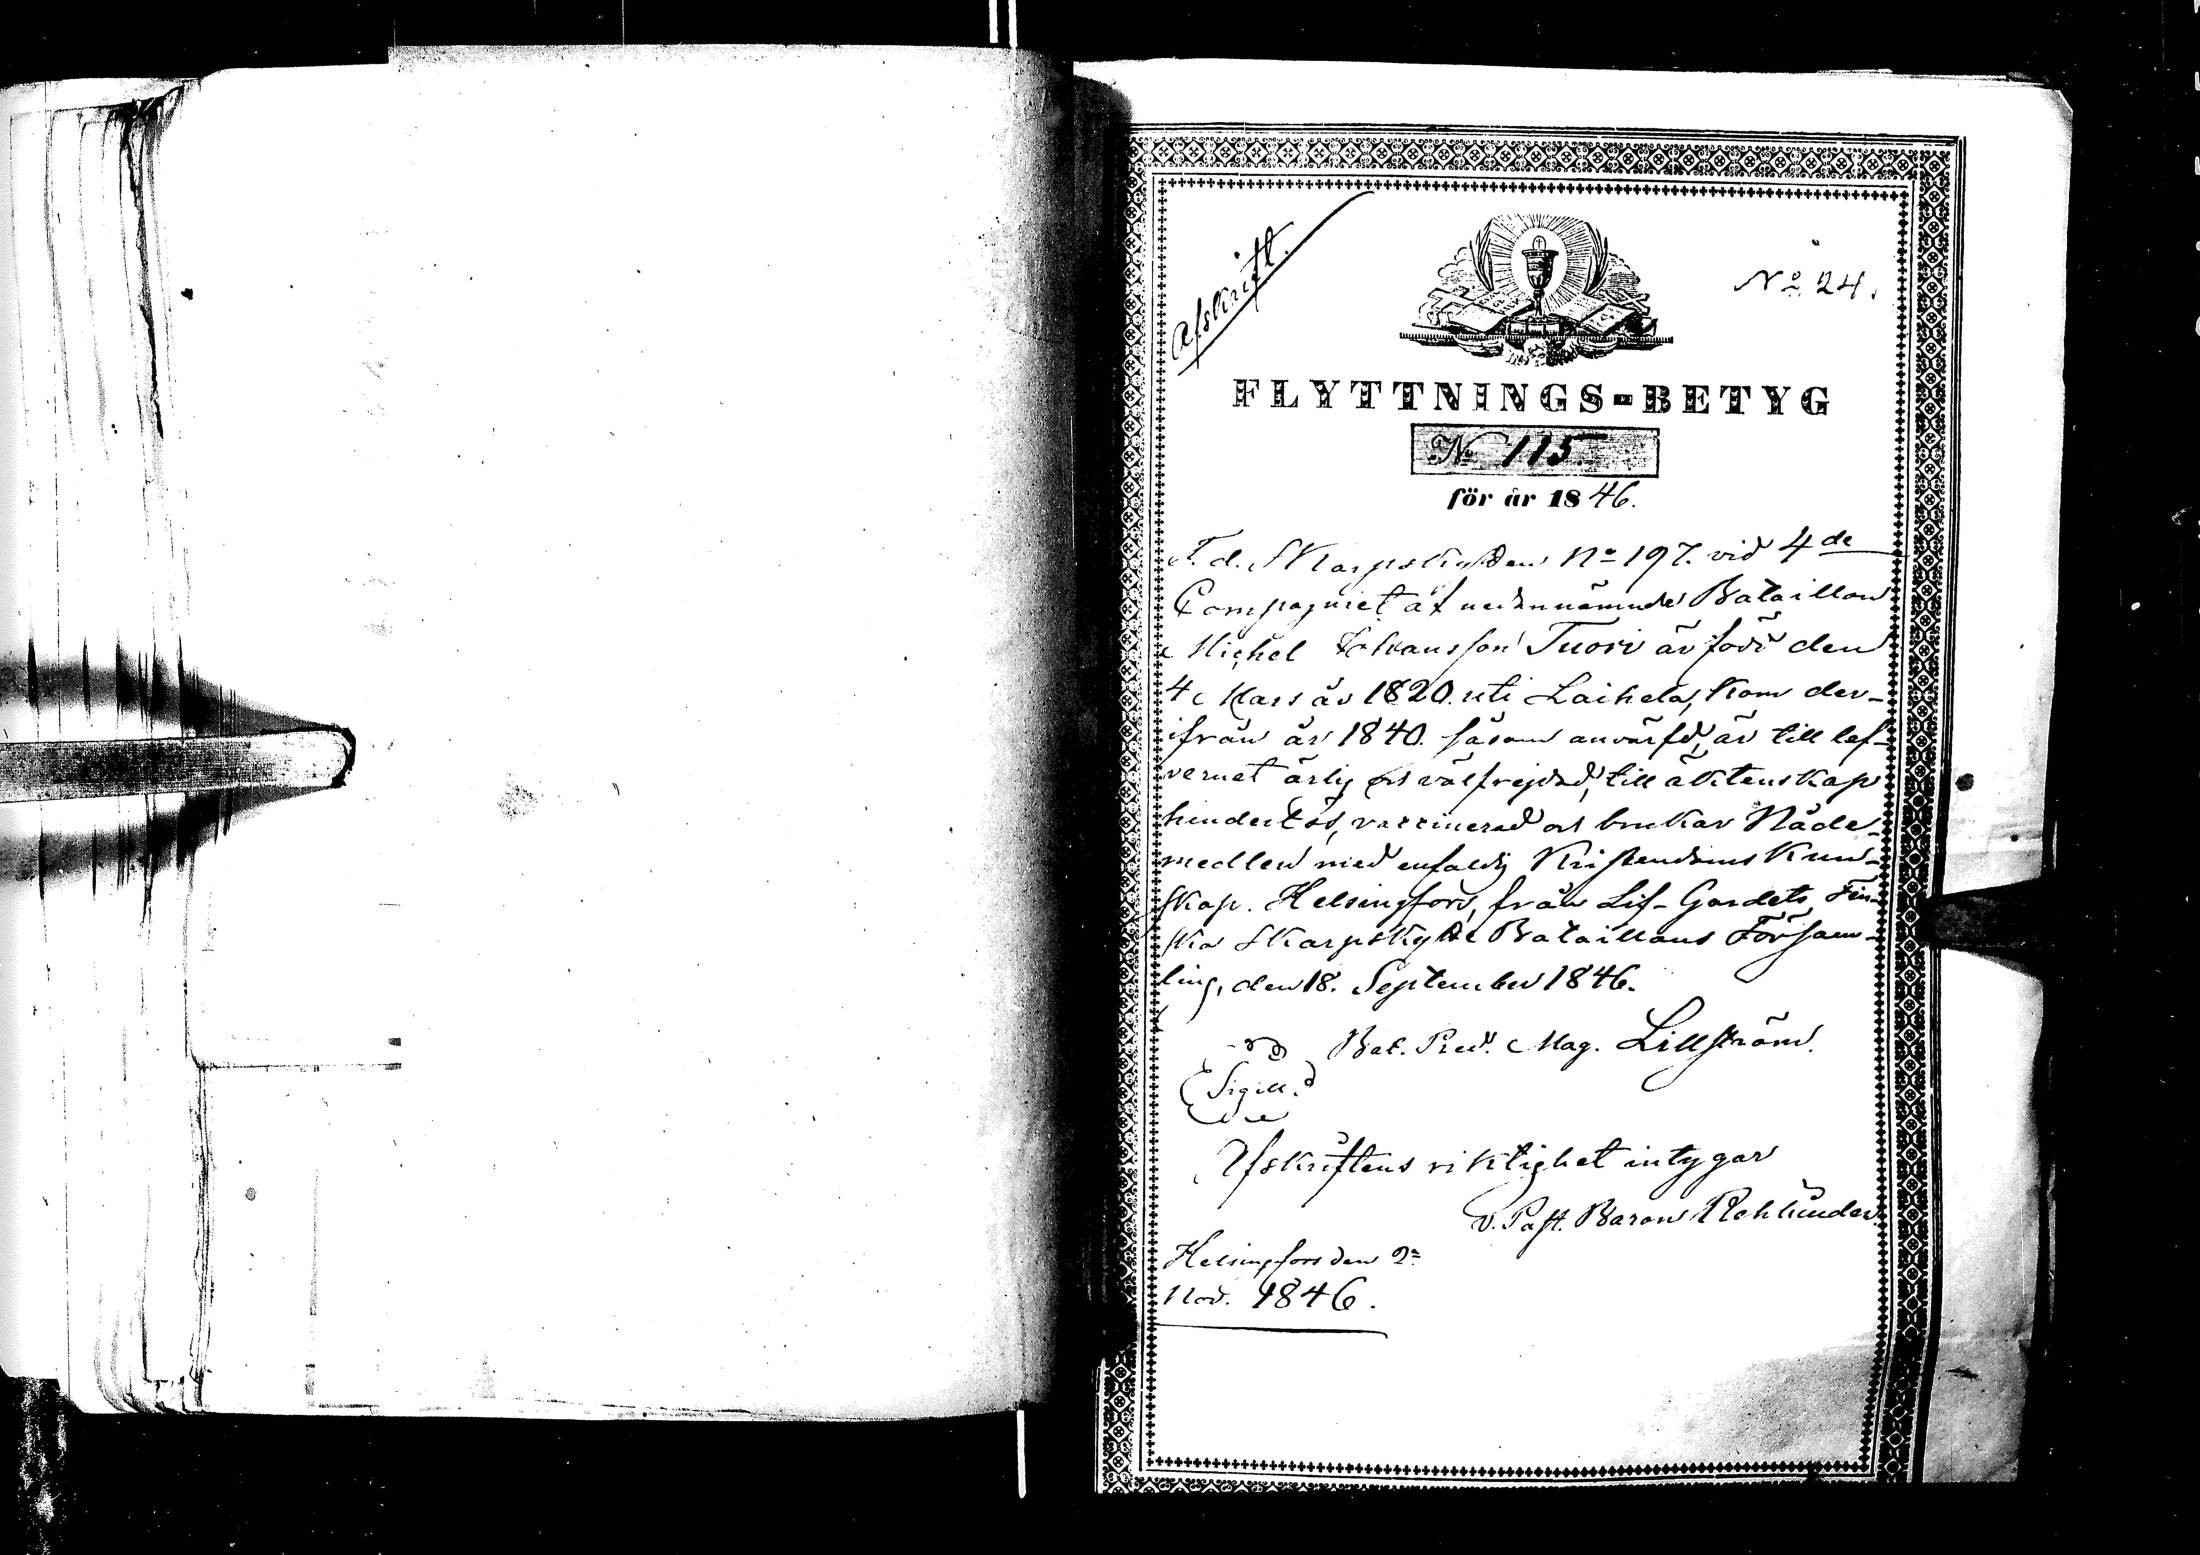 Afskrift.
No 24.
FLYTTNINGS-BETYG
No 115.
för år 1846.
F. d. Skarpskytten No 197. vid 4de
Compagniet af nedannämnde Bataillon
Michel Johansson Tuori är född den
4 Mars år 1820. uti Laihela, kom der-
ifrån år 1840. såsom anvärfd, är till lef-
vernet ärlig och välfrejdad, till äktenskap
hinderlös, vaccinerad och brukar Nåde-
medlen med enfaldig Kristendoms kun-
skap. Helsingfors, från Lif-Gardets Fin-
ska Skarpskytte Bataillons Försam-
ling, den 18. September 1846.
Bat. Pred. Mag. Lillström.
Sigill.
Afskriftens riktighet intygar
v. Past. Baron Rehbinder.
Helsingfors den 2
Nov. 1846.